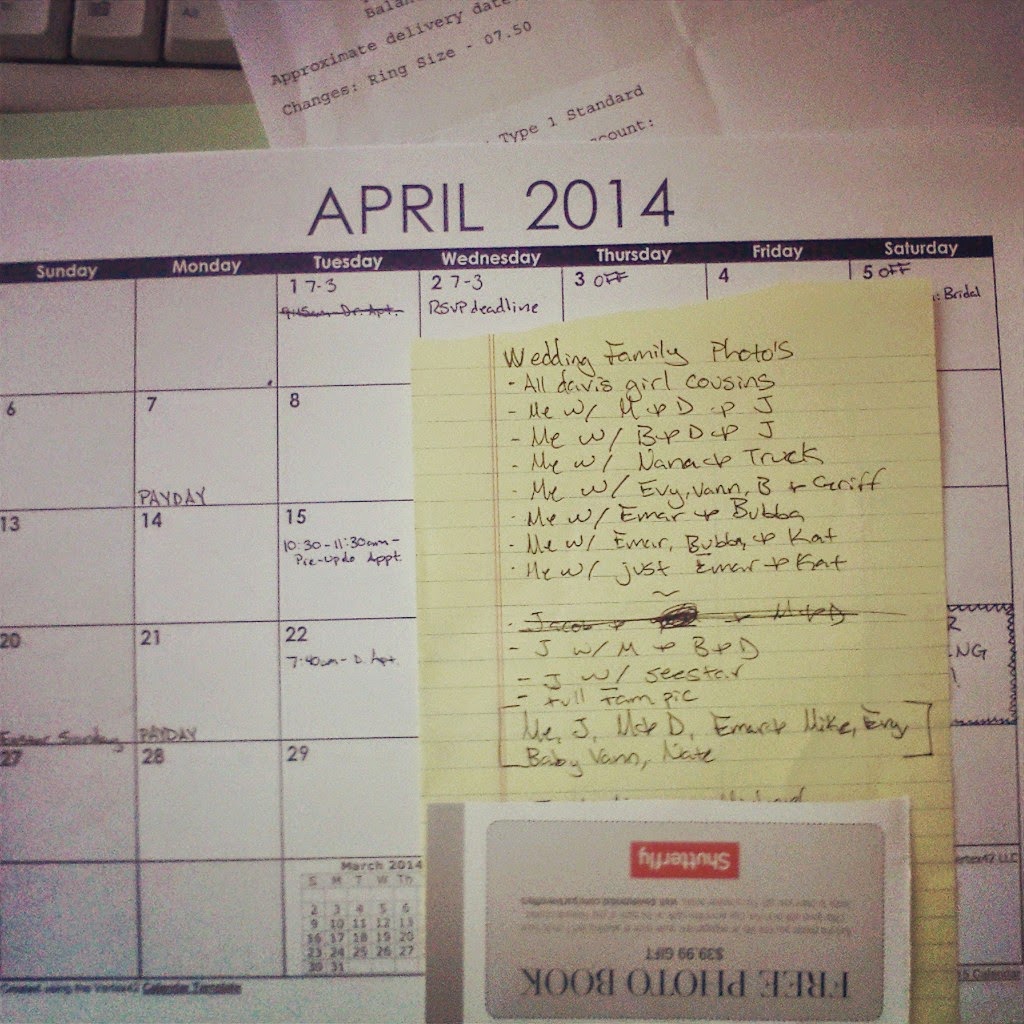 Approximate delivery date
Changes: Ring Size - 07.50
Type 1 Standard
ccount:
APRIL 2014
Sunday Monday Tuesday Wednesday Thursday Friday Saturday
1 7-3
9:45am- Dr. Apt.
2 7-3
RSVP deadline
3 OFF
4
5 OFF
: Bridal
6
7
PAYDAY
8
13
14
15
10:30-11:30am-
Pre-updo Appt.
20
Easter Sunday
21
PAYDAY
22
7:40am- D. Apt.
NG
27
28
29
March 2014
S M T W Th
2 3 4 5 6
9 10 11 12 13
16 17 18 19 20
23 24 25 26 27
30 31
Created using the Vertex42 Calendar Template
Vertex42 LLC
Calendar
Wedding Family Photo's
- All davis girl cousins
- Me w/ M & D & J
- Me w/ B & D & J
- Me w/ Nana & Truck
- Me w/ Evy, Vann, B & Griff
- Me w/ Emar & Bubba
- Me w/ Emar, Bubba, & Kat
- Me w/ just Emar & Kat
~
- Jacob & & M & D
- J w/ M & B & D
- J w/ seestar
- Full Fam pic
[Me, J, M & D, Emar & Mike, Evy
Baby Vann, Nate]
FREE PHOTO BOOK
$39.99 GIFT
Shutterfly